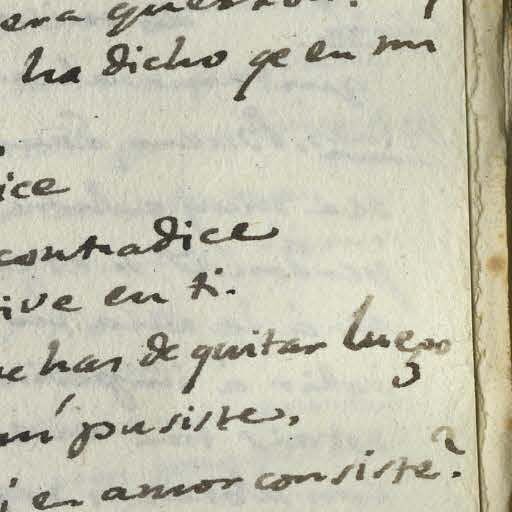 era question?
ha dicho qe en mi
ice
contradice
ive en ti.
ue has de quitar luego
mí pusiste,
í en amor consiste?